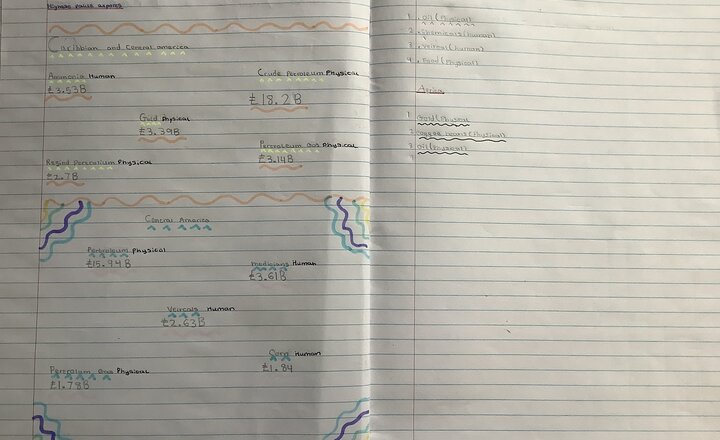 Highest value exports
Caribbian and Central america
Ammonia Human
£3.53B
Crude Petroleum Physical
£18.2B
Gold Physical
£3.39B
Petroleum Gas Physical
£3.14B
Physical
£2.7B
Central America
Petroleum Physical
£15.94B
Human
£3.61B
Human
£2.63B
Corn Human
£1.84
Gas Physical
£1.78B
1. Oil (Physical)
2. Chemicals (human)
3. (human)
4. Food (Physical)
Africa
1 Gold (Physical
2 coffee beans (Physical)
3 Oil (Physical)
4